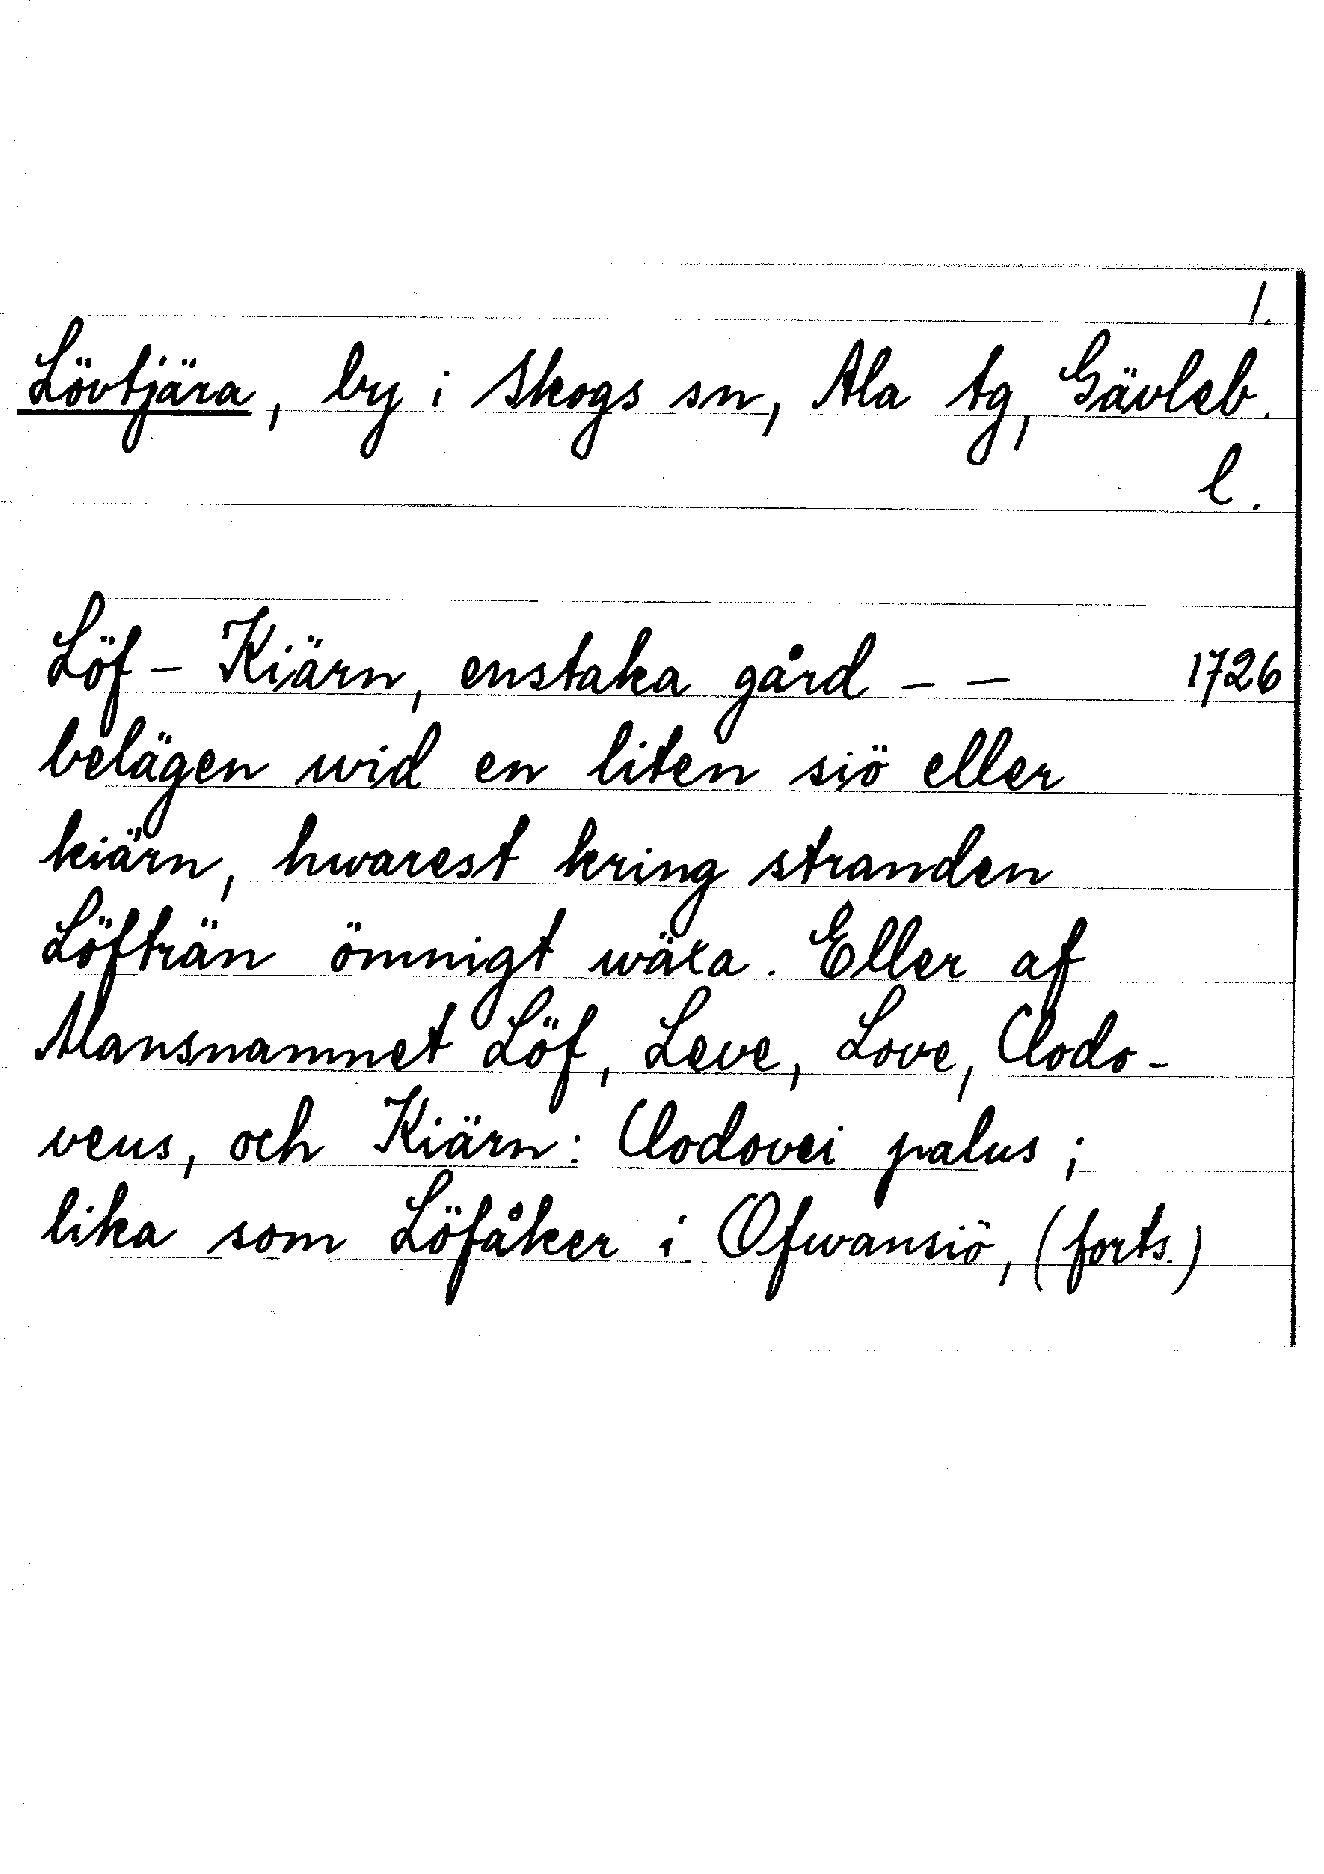 1.
Lövtjära, by i Skogs sn, Ala tg, Gävleb.
l.
Löf - Kiärn, enstaka gård - - 1726
belägen wid en liten siö eller
kiärn, hwarest kring stranden
Löfträn ömnigt wäxa. Eller af
Mansnamnet Löf, Leve, Love, Clodo-
veus, och Kiärn: Clodovei palus;
lika som Löfåker i Ofwansiö, (forts.)